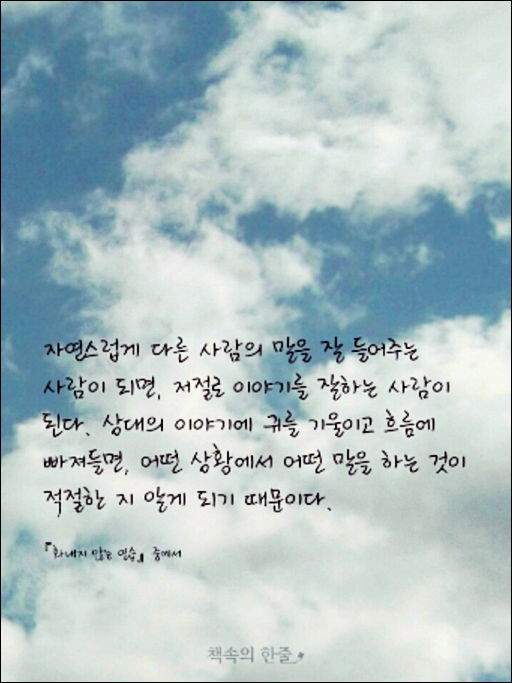 자연스럽게 다른 사람의 말을 잘 들어주는
사람이 되면, 저절로 이야기를 잘하는 사람이
된다. 상대의 이야기에 귀를 기울이고 흐름에
빠져들면, 어떤 상황에서 어떤 말을 하는 것이
적절한 지 알게 되기 때문이다.
『화내지 않는 연습』 중에서
책속의 한줄